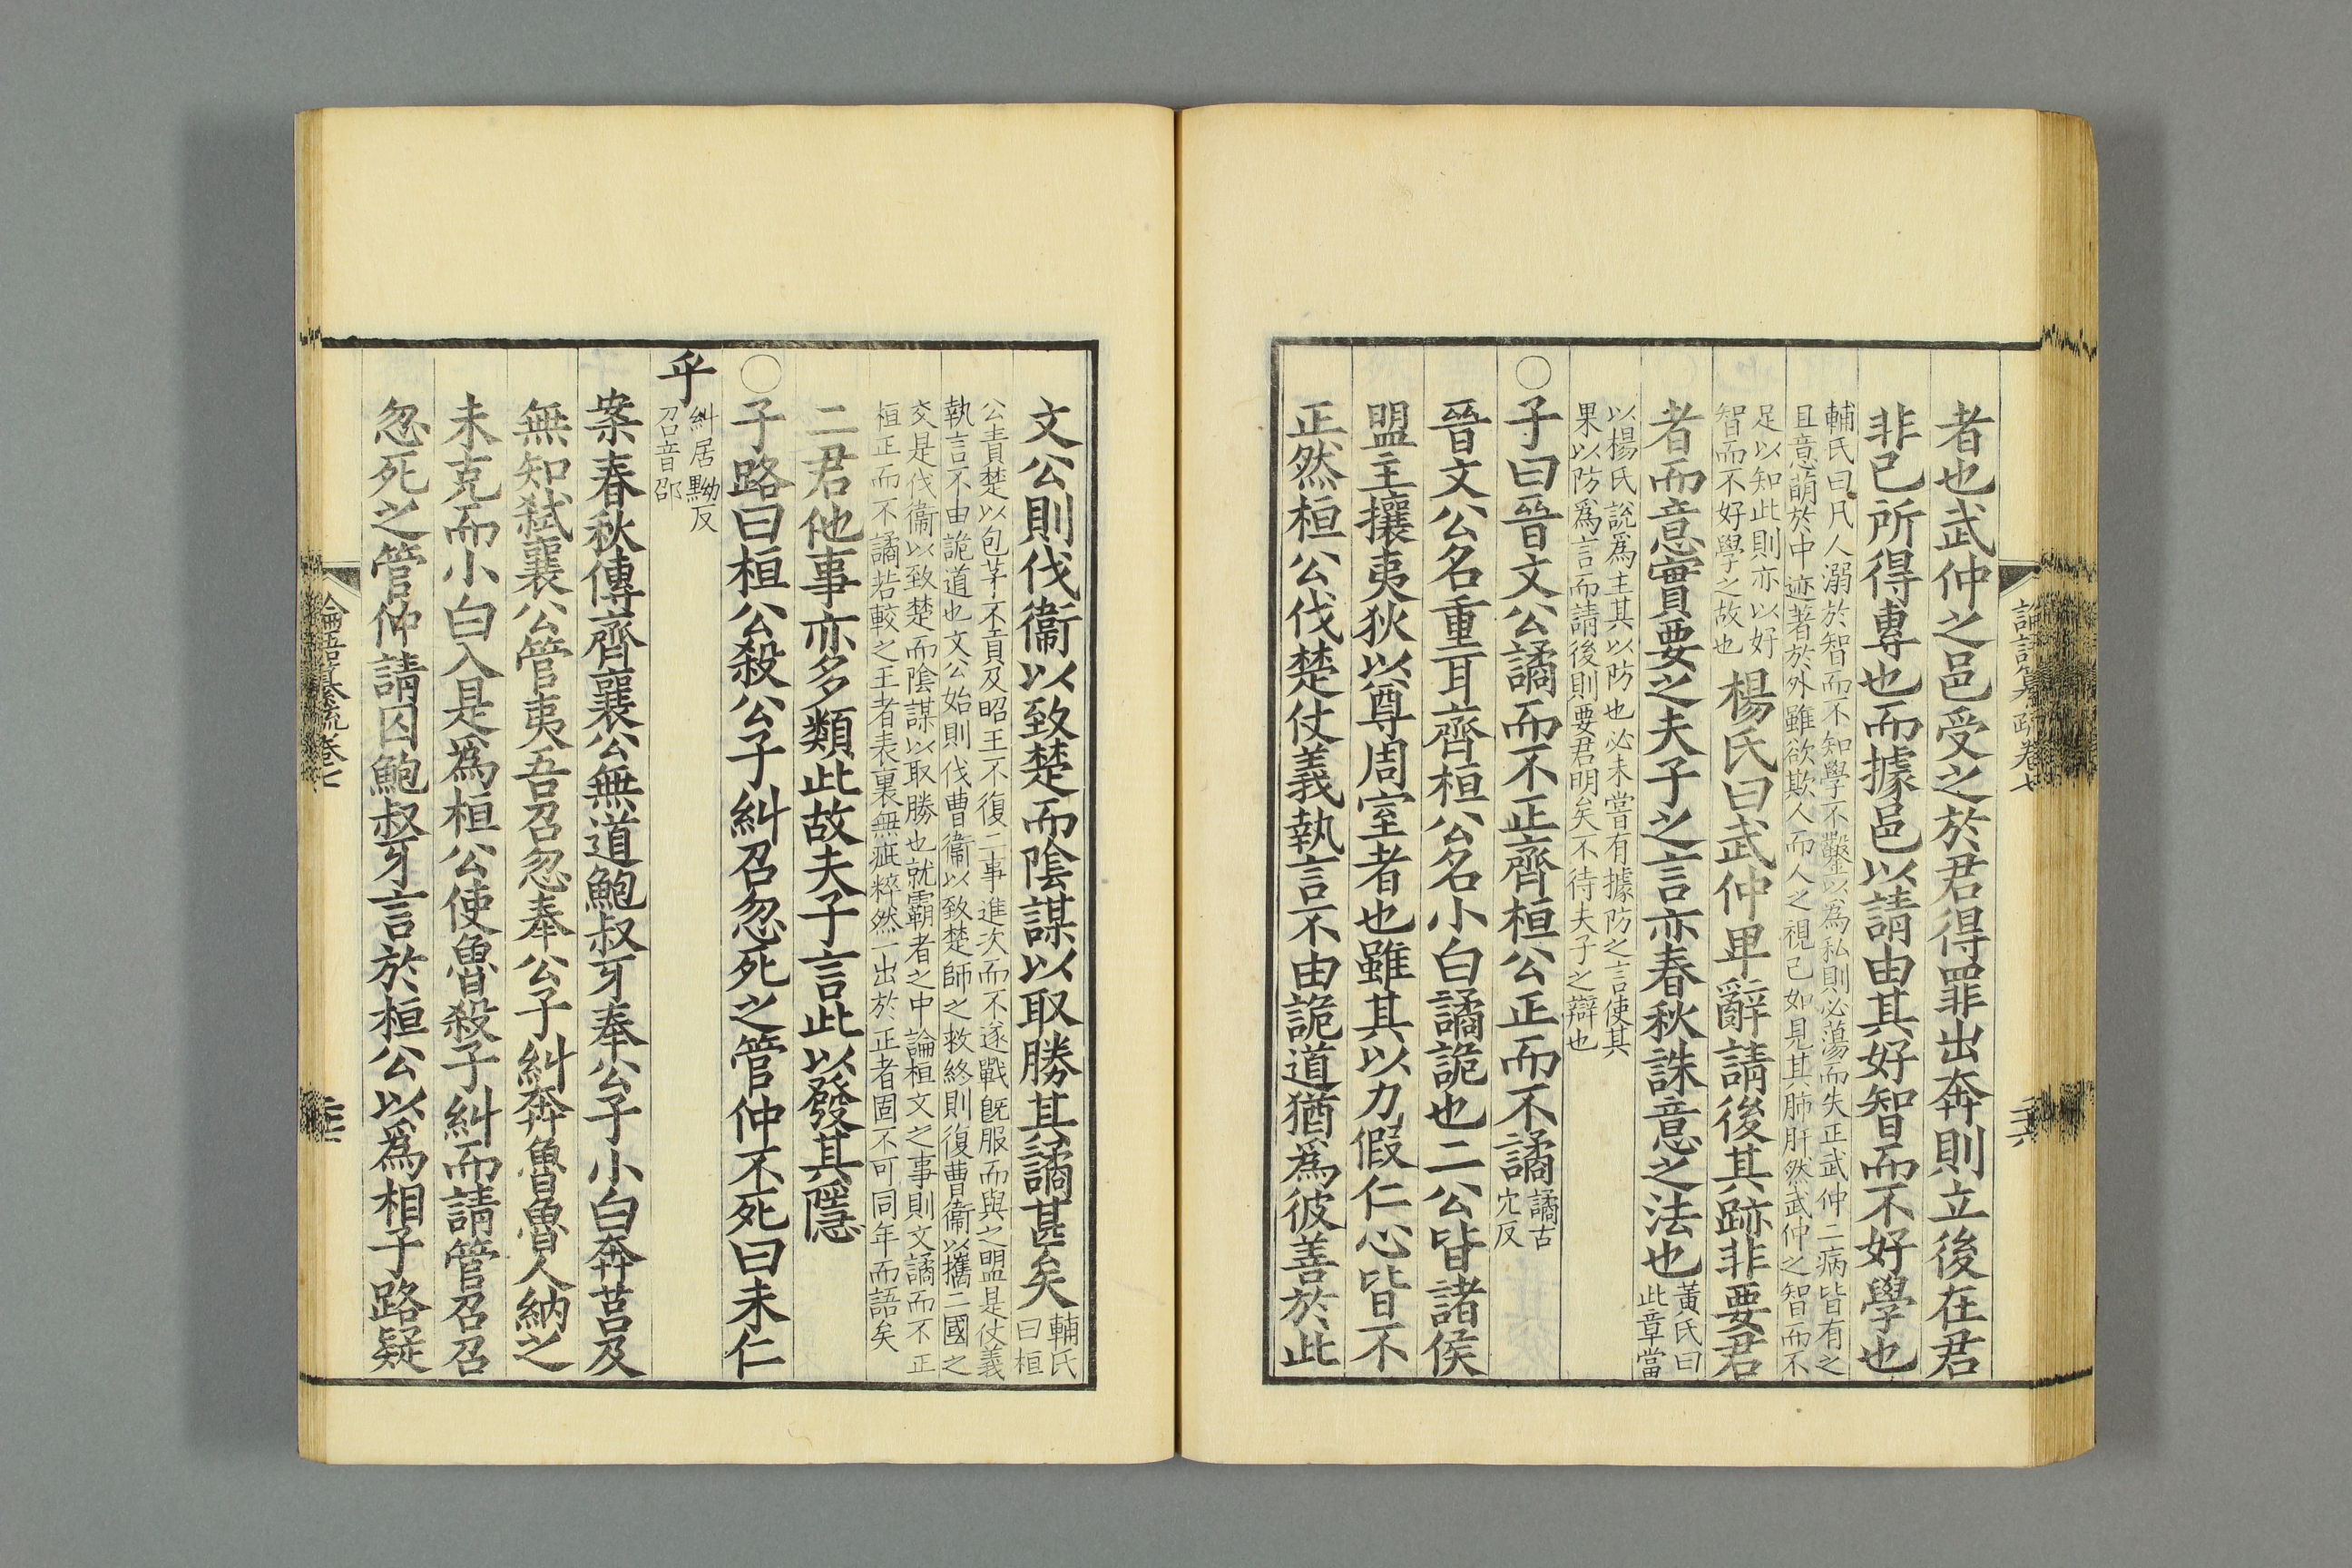 論語纂疏卷七
二六
者也武仲之邑受之於君得罪出奔則立後在君
非已所得專也而據邑以請由其好智而不好學也
輔氏曰凡人溺於智而不知學不鑿以為私則必蕩而失正武仲二病皆有之
且意萌於中迹著於外雖欲欺人而人之視己如見其肺肝然武仲之智而不
足以知此則亦以好
智而不好學之故也
楊氏曰武仲卑辭請後其跡非要君
者而意實要之夫子之言亦春秋誅意之法也
黃氏曰
此章當
以楊氏說爲主其以防也必未嘗有據防之言使其
果以防爲言而請後則要君明矣不待夫子之辯也
○子曰晉文公譎而不正齊桓公正而不譎
譎古
穴反
晉文公名重耳齊桓公名小白譎詭也二公皆諸侯
盟主攘夷狄以尊周室者也雖其以力假仁心皆不
正然桓公伐楚仗義執言不由詭道猶爲彼善於此
文公則伐衞以致楚而陰謀以取勝其譎甚矣
輔氏
曰桓
公責楚以包茅不貢及昭王不復二事進次而不遂戰旣服而與之盟是仗義
執言不由詭道也文公始則伐曹衞以致楚師之救終則復曹衞以攜二國之
交是伐衞以致楚而陰謀以取勝也就霸者之中論桓文之事則文譎而不正
桓正而不譎若較之王者表裏無疵粹然一出於正者固不可同年而語矣
二君他事亦多類此故夫子言此以發其隱
○子路曰桓公殺公子糾召忽死之管仲不死曰未仁
乎
糾居黝反
召音邵
案春秋傳齊襄公無道鮑叔牙奉公子小白奔莒及
無知弒襄公管夷吾召忽奉公子糾奔魯魯人納之
未克而小白入是爲桓公使魯殺子糾而請管召召
忽死之管仲請囚鮑叔牙言於桓公以爲相子路疑
論語纂疏卷七